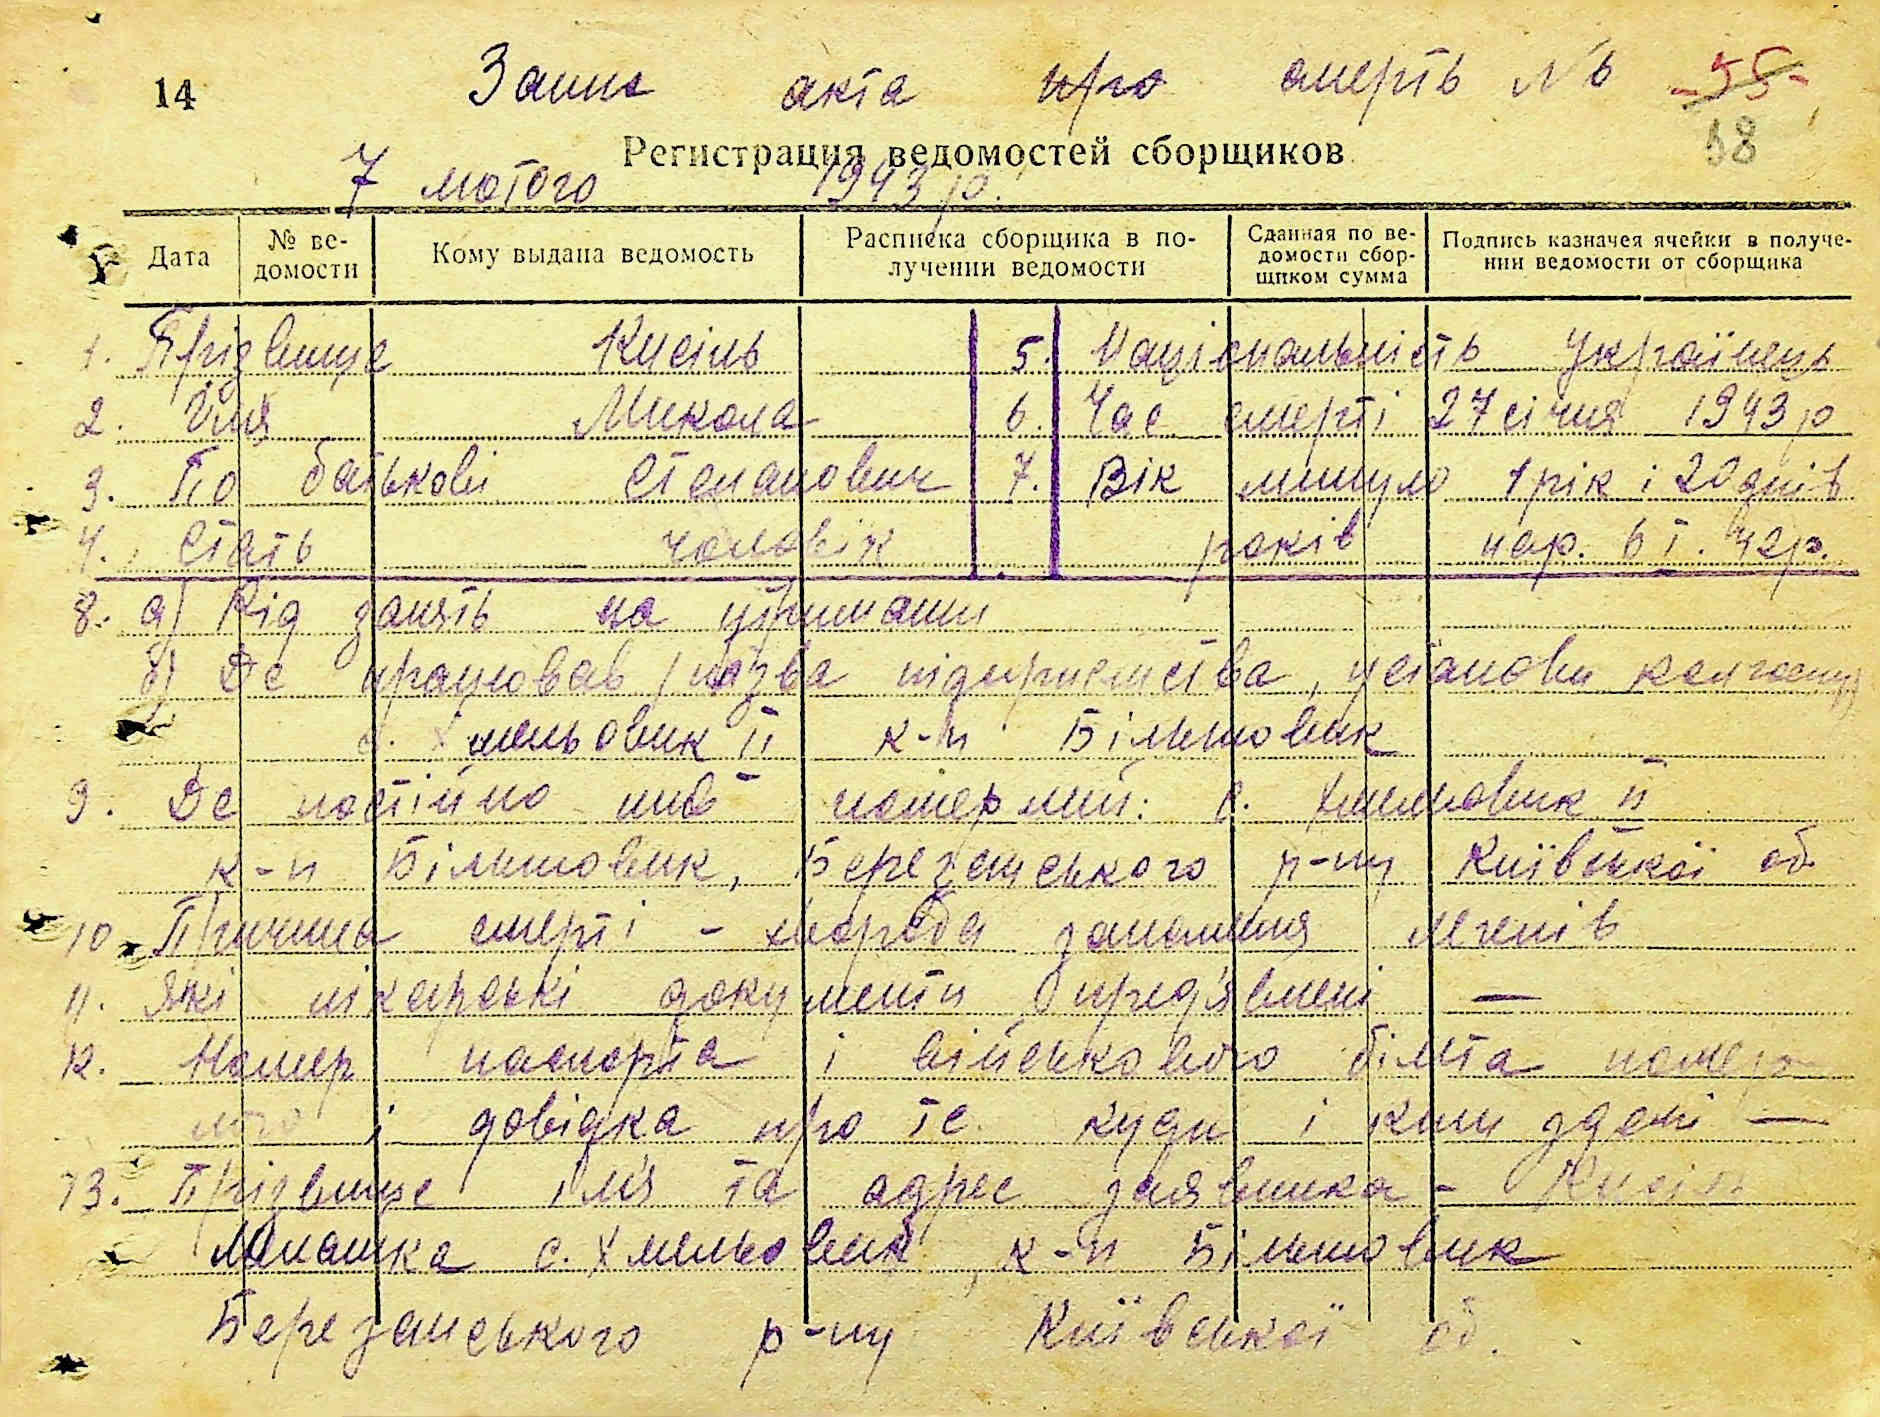 14 Запис акта про смерть № 55
38
Регистрация ведомостей сборщиков
7 лютого 1943 р.
Дата
№ ве-
домости
Кому выдана ведомость
Расписка сборщика в по-
лучении ведомости
Сданная по ве-
домости сбор-
щиком сумма
Подпись казначея ячейки в получе-
нии ведомости от сборщика
1. Прізвище Кисіль 5. Національність Українець
2. Імя Микола 6. Час смерті 27 січня 1943 р
3. По батькові Степанович 7. Вік минуло 1 рік і 20 днів
4. Стать чоловік років нар. 6 I. 42 р.
8. а) Рід занять на утриманні
б) Де працював (назва підприємства, установи колгоспу)
с. Хмельовик II к-п Більшовик
9. Де постійно жив померлий: с. Хмельовик II
к-п Більшовик, Березанського р-ну Київської об.
10. Причина смерті - хвороба запалення легенів
11. Які лікарські документи пред'явлені —
12. Номер паспорта і військового білета помер
лого і довідка про те куди і коли здані —
13. Прізвище ім'я та адрес заявника - Кисіль
с. Хмельовик, к-п Більшовик
Березанського р-ну Київської об.